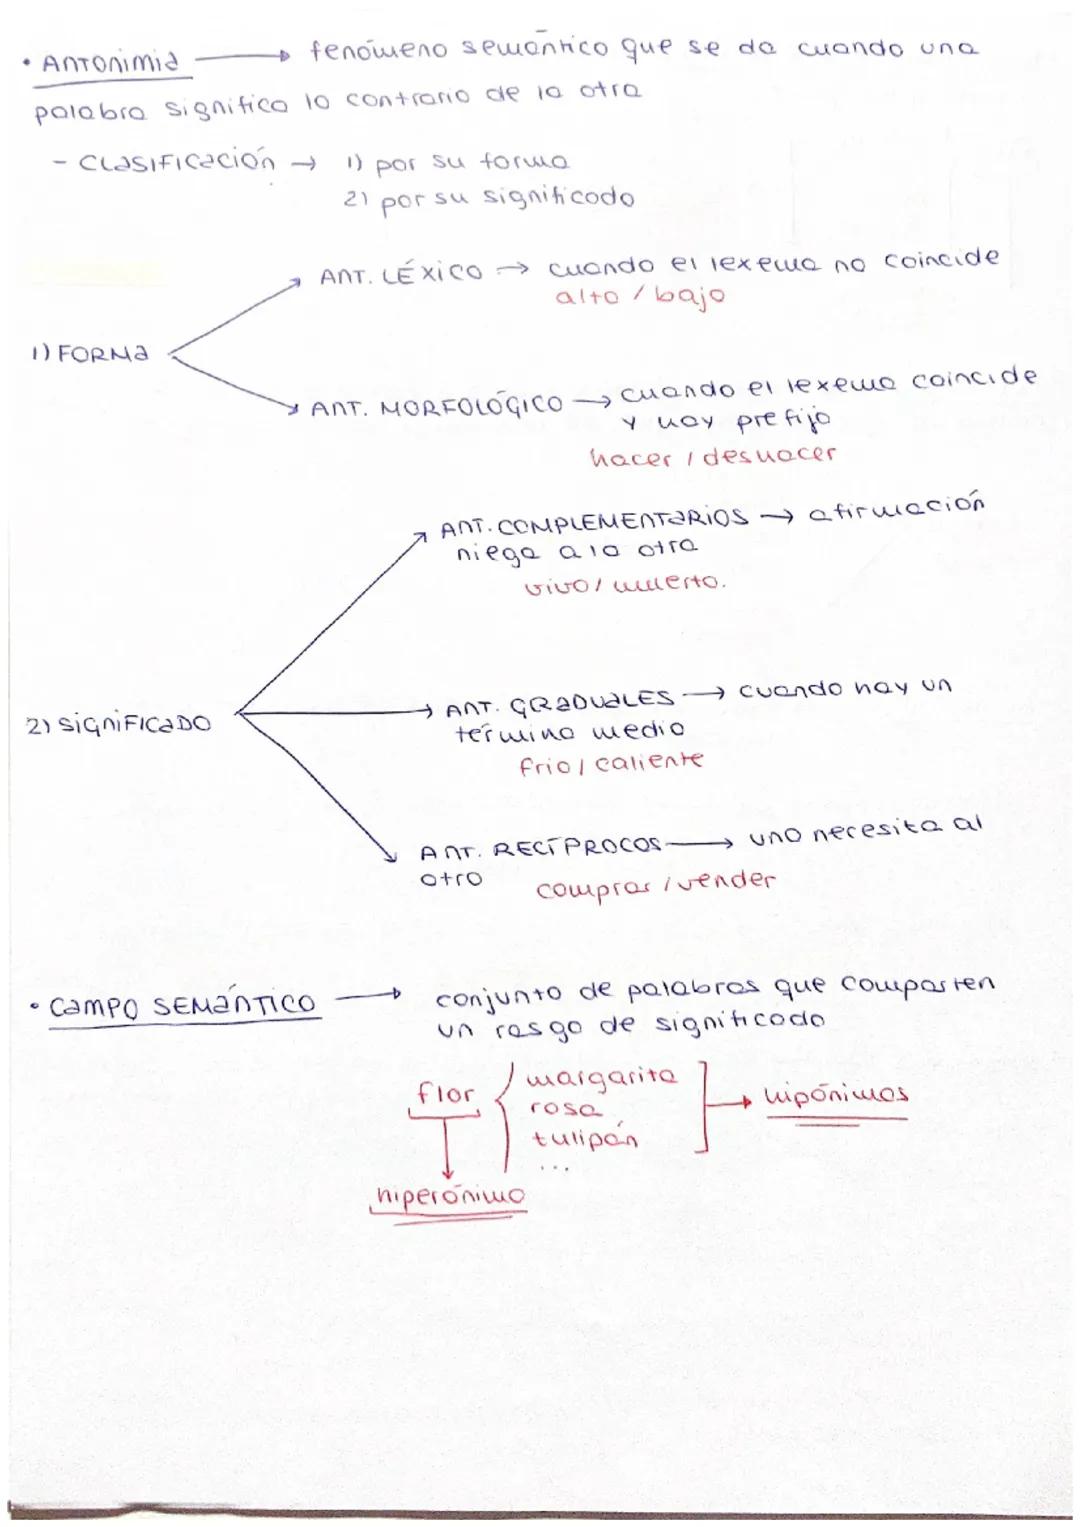 • ANTONIMIA → fenómeno semántico que se da cuando una
palabra significa lo contrario de la otra
- CLASIFICACIÓN → 1) por su forma
2) por su significado
ANT. LÉXICO → cuando el lexema no coincide
alto / bajo
1) FORMA
ANT. MORFOLÓGICO → cuando el lexema coincide
y hay prefijo
hacer / deshacer
ANT. COMPLEMENTARIOS → afirmación
niega a la otra
vivo / muerto.
2) SIGNIFICADO
ANT. GRADUALES → cuando hay un
término medio
frio / caliente
ANT. RECÍPROCOS → uno necesita al
otro
comprar / vender
• CAMPO SEMÁNTICO → conjunto de palabras que comparten
un rasgo de significado
flor
margarita
rosa
tulipán
...
hipónimos
hiperónimo